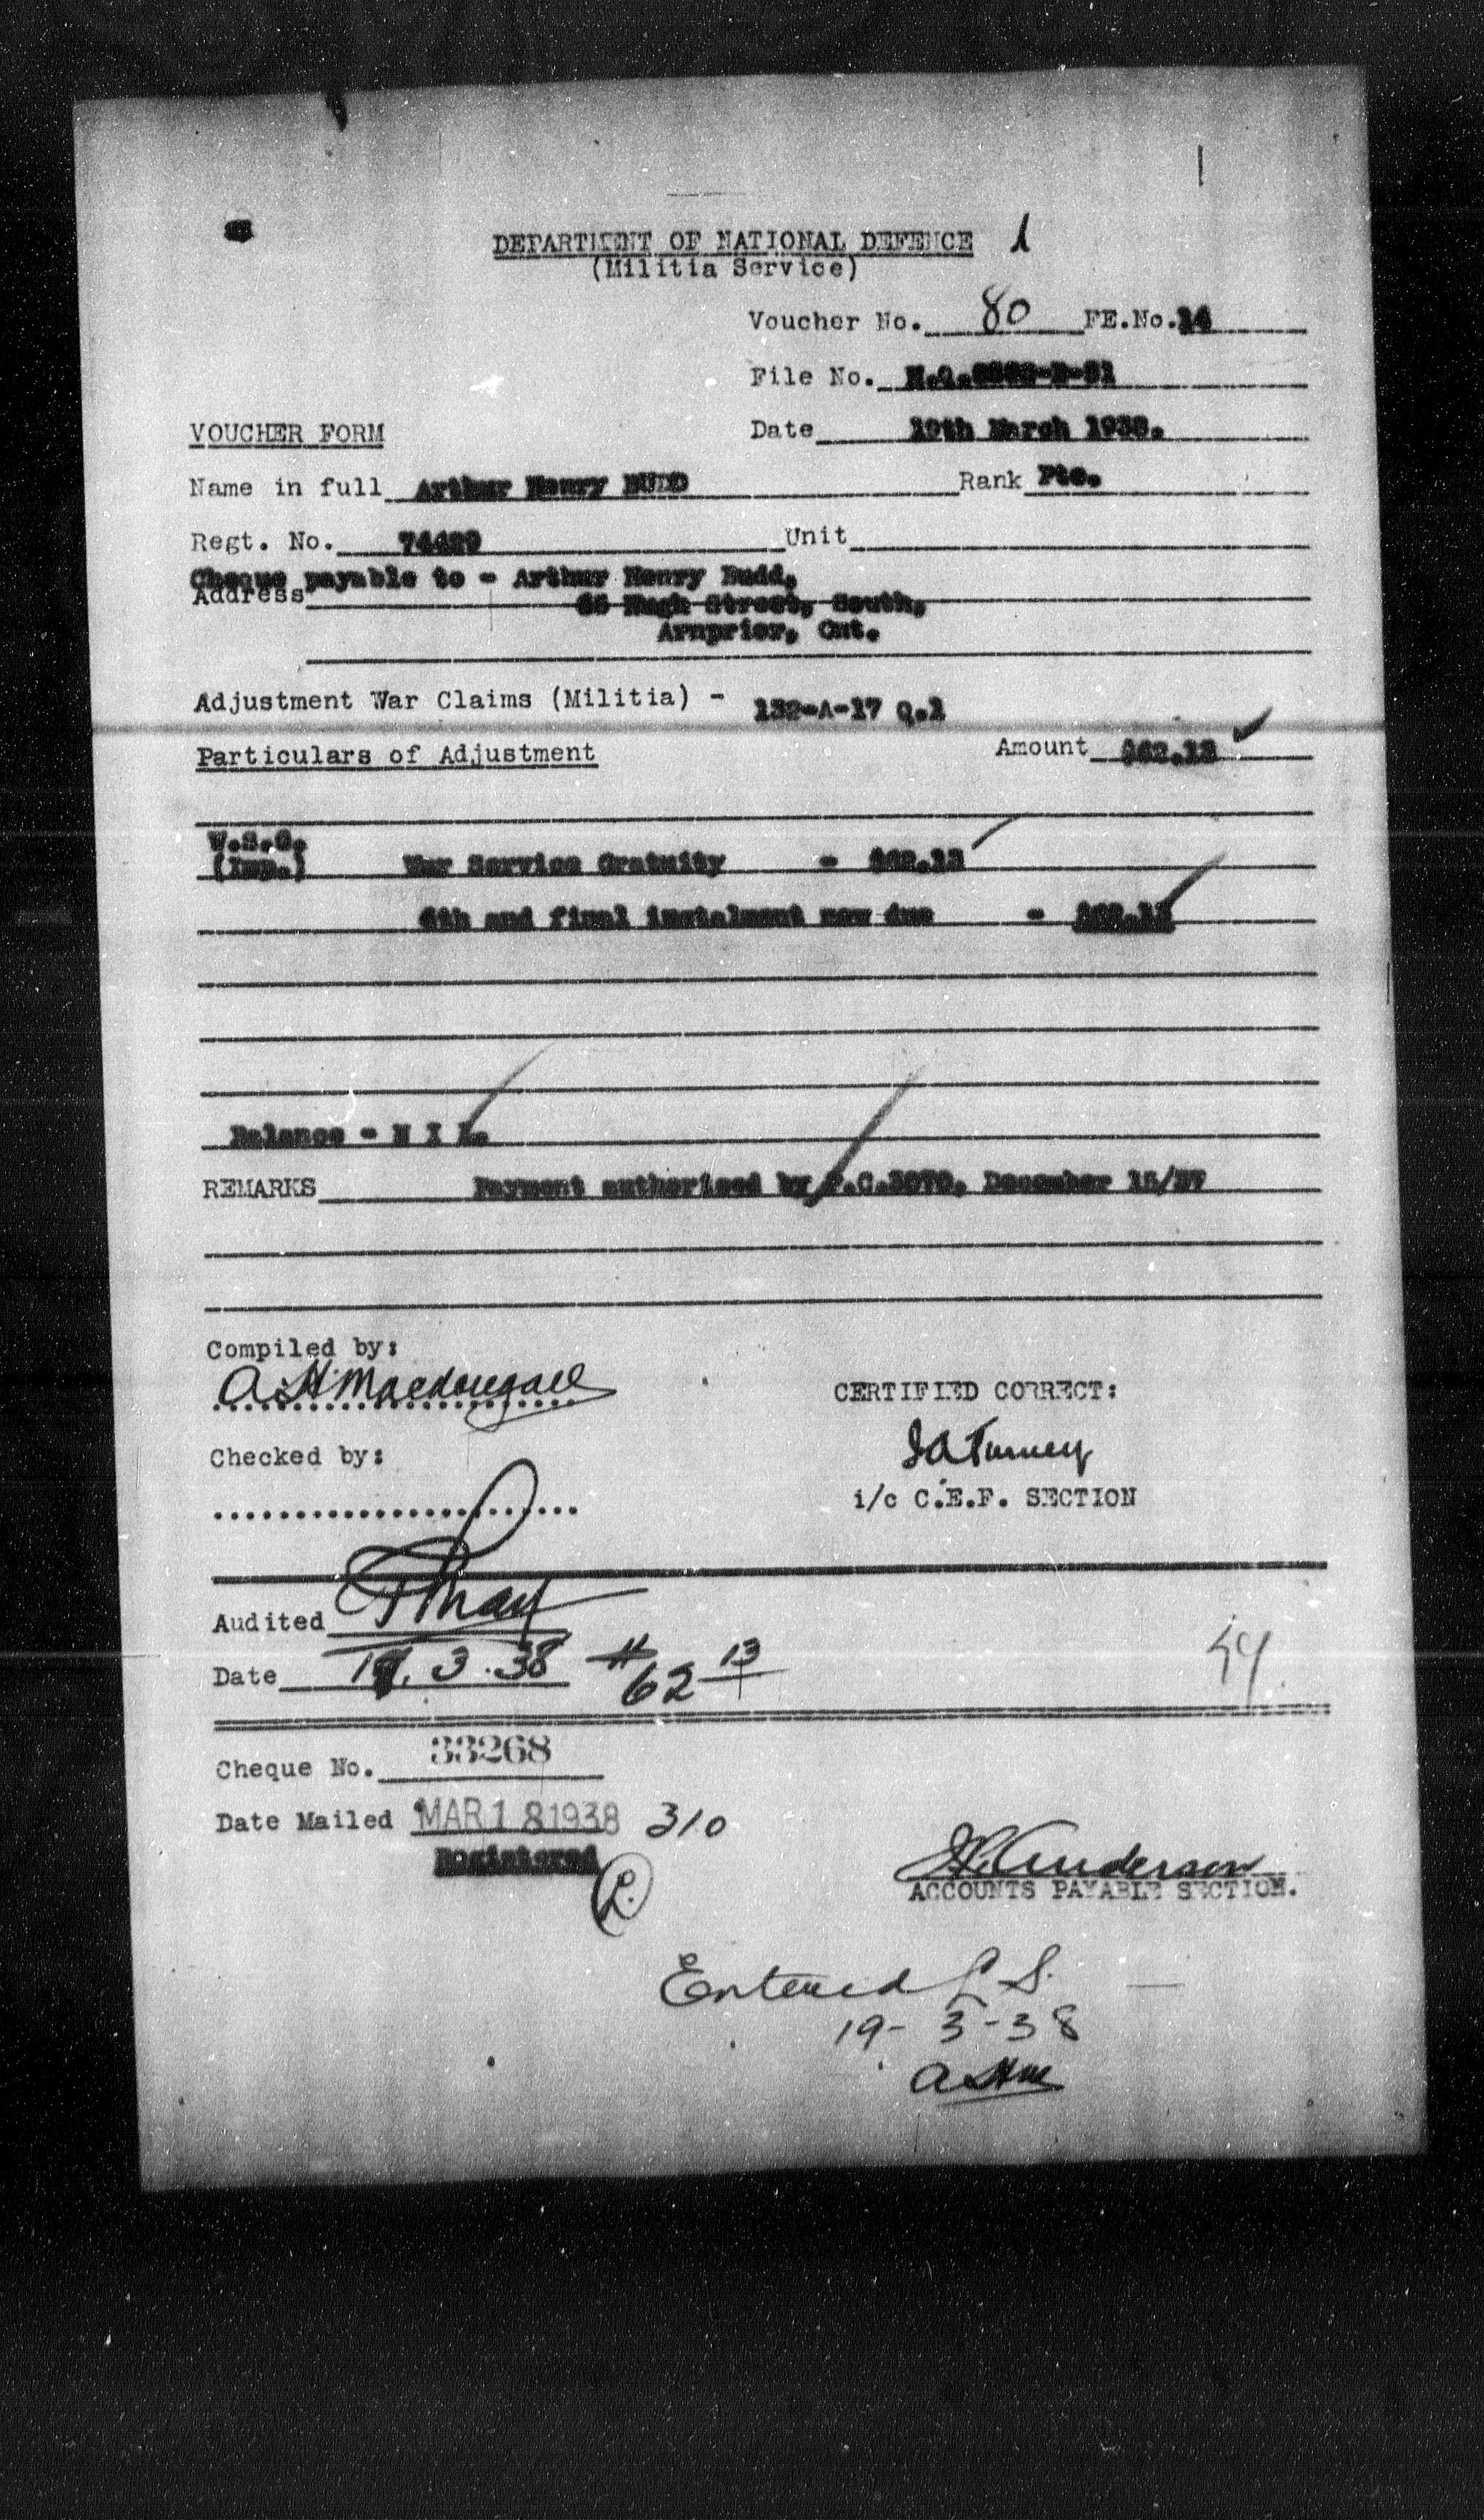 DEPARTMENT OF NATIONAL DEFENCE 1
(Militia Service)
Voucher No. 80 FE.No.14
File No.
VOUCHER FORM
Date March 1938.
Name in full Arthur Henry BUDD Rank Pte.
Regt. No. 74429 Unit
Cheque payable to - Arthur Henry Budd,
Address
Hugh Street, South,
Arnprior, Ont.
Adjustment War Claims (Militia) - 132-A-17 Q.1
Particulars of Adjustment Amount $62.13
W.S.G.
(Imp.) War Service Gratuity - $62.13
6th and final instalment now due - $62.13
Balance - N I L.
REMARKS Payment authorised by P.C. December 15/37
Compiled by:
A.H. Macdougall
CERTIFIED CORRECT:
Checked by:
i/c C.E.F. SECTION
Audited
Date 3.38 #62 13
54
Cheque No. 33268
Date Mailed MAR 18 1938 310
Registered
Anderson
ACCOUNTS PAYABLE SECTION.
Entered L.S.
19-3-38